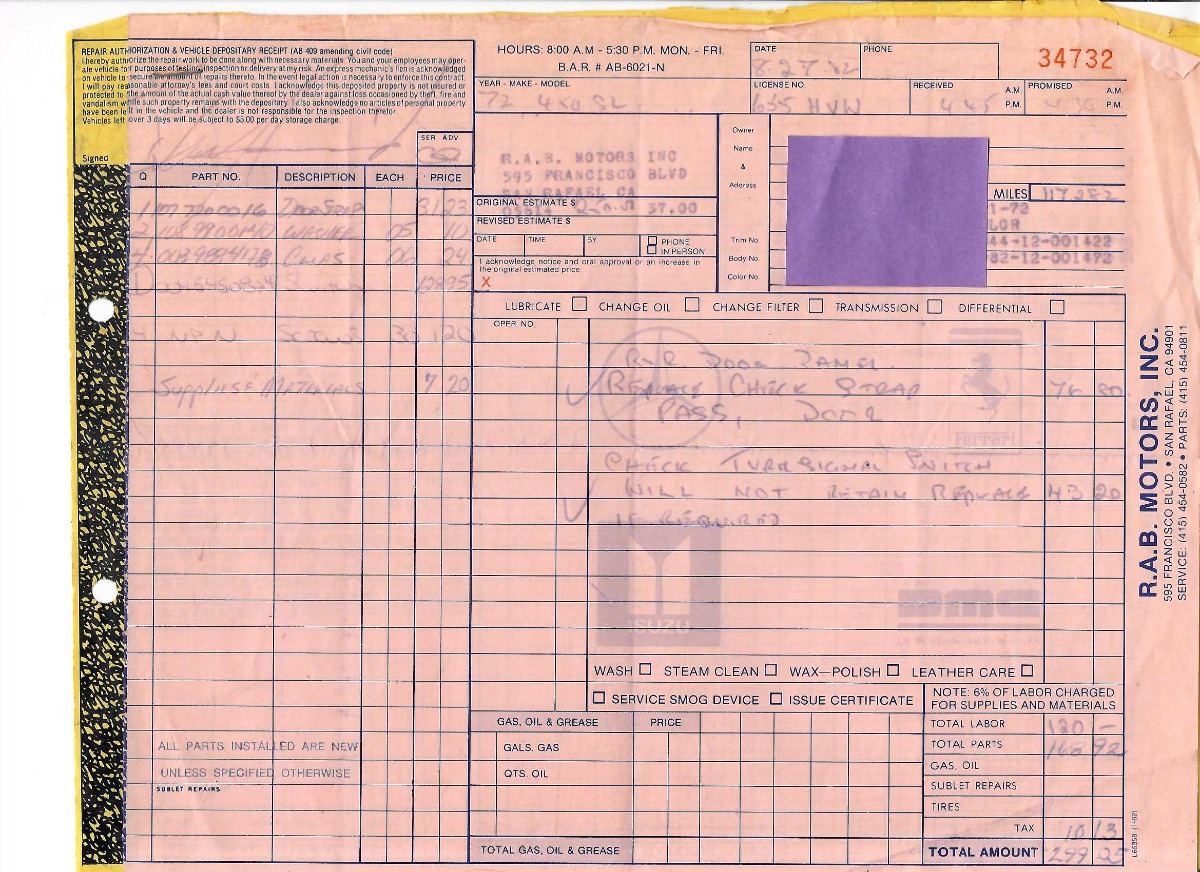 REPAIR AUTHORIZATION & VEHICLE DEPOSITARY RECEIPT (AB 409 amending civil code)
I hereby authorize the repair work to be done along with necessary materials. You and your employees may oper-
ate vehicle for purposes of testing, inspection or delivery at my risk. An express mechanic's lien is acknowledged
on vehicle to secure the amount of repairs thereto. In the event legal action is necessary to enforce this contract,
I will pay reasonable attorney's fees and court costs. I acknowledge this deposited property is not insured or
protected to the amount of the actual cash value thereof by the dealer against loss occasioned by theft, fire and
vandalism while such property remains with the depositary. I also acknowledge no articles of personal property
have been left in the vehicle and the dealer is not responsible for the inspection therefor.
Vehicles left over 3 days will be subject to $5.00 per day storage charge.
Signed
SER ADV
HOURS: 8:00 A.M - 5:30 P.M. MON. - FRI.
B.A.R. # AB-6021-N
DATE
8.27.82
PHONE
34732
YEAR - MAKE - MODEL
72 450 SL
LICENSE NO.
655 HVW
RECEIVED
445
A.M.
P.M.
PROMISED
A.M.
P.M.
R.A.B. MOTORS INC
595 FRANCISCO BLVD
SAN RAFAEL CA
ORIGINAL ESTIMATE $
37.00
REVISED ESTIMATE $
DATE
TIME
BY
PHONE
IN PERSON
I acknowledge notice and oral approval or an increase in
the original estimated price.
X
Owner
Name
&
Address
Trim No.
Body No.
Color No.
MILES
117282
1-72
LOR
44-12-001422
82-12-001472
Q PART NO. DESCRIPTION EACH PRICE
1 DOOR STRAP 31 23
2 WASHER 05 10
4 CLIPS 06 24
128 95
4 NPN SCREWS 30 1 20
Supplies & Materials 7 20
ALL PARTS INSTALLED ARE NEW
UNLESS SPECIFIED OTHERWISE
SUBLET REPAIRS
LUBRICATE CHANGE OIL CHANGE FILTER TRANSMISSION DIFFERENTIAL
OPER. NO.
R+R DOOR PANEL
REPLACE CHECK STRAP 76 80
PASS, DOOR
Ferrari
CHECK TURN SIGNAL SWITCH
WILL NOT RETAIN REPLACE 43 20
IF REQUIRED
ISUZU
DMC
WASH STEAM CLEAN WAX—POLISH LEATHER CARE
SERVICE SMOG DEVICE ISSUE CERTIFICATE
NOTE: 6% OF LABOR CHARGED
FOR SUPPLIES AND MATERIALS
GAS, OIL & GREASE PRICE
GALS. GAS
QTS. OIL
TOTAL GAS, OIL & GREASE
TOTAL LABOR 120 —
TOTAL PARTS 168 92
GAS, OIL
SUBLET REPAIRS
TIRES
TAX 10 13
TOTAL AMOUNT 299 05
R.A.B. MOTORS, INC.
595 FRANCISCO BLVD. • SAN RAFAEL, CA 94901
SERVICE: (415) 454-0582 • PARTS: (415) 454-0811